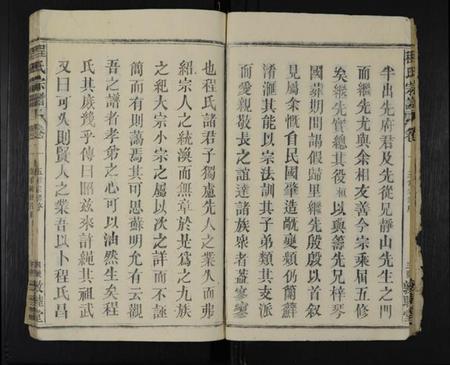 半出先府君及先從兄靜山先生之門
而繼先尤與余相友善今宗乘屆五修
矣繼先實總其役 以與籌先兄梓琴
國葬期間請假歸里繼先殷殷以首敘
見屬余慨自民國肇造亂變類仍簡
淆滙其能以宗法訓其子弟類其支派
而愛親敬長之誼達諸族眾者蓋寥寥
也程氏諸君子獨處先人之業失而弗
紹宗人之統渙而無章於是為之九族
之紀大宗小宗之屬以次之詳而不誣
簡而有則藹焉其可思蘇明允有云觀
吾之譜者孝弟之心可以油然生矣程
氏其庶幾乎傳曰昭茲來許繩其祖武
又曰可久則賢人之業吾以卜程氏昌
程氏宗譜
敦睦堂